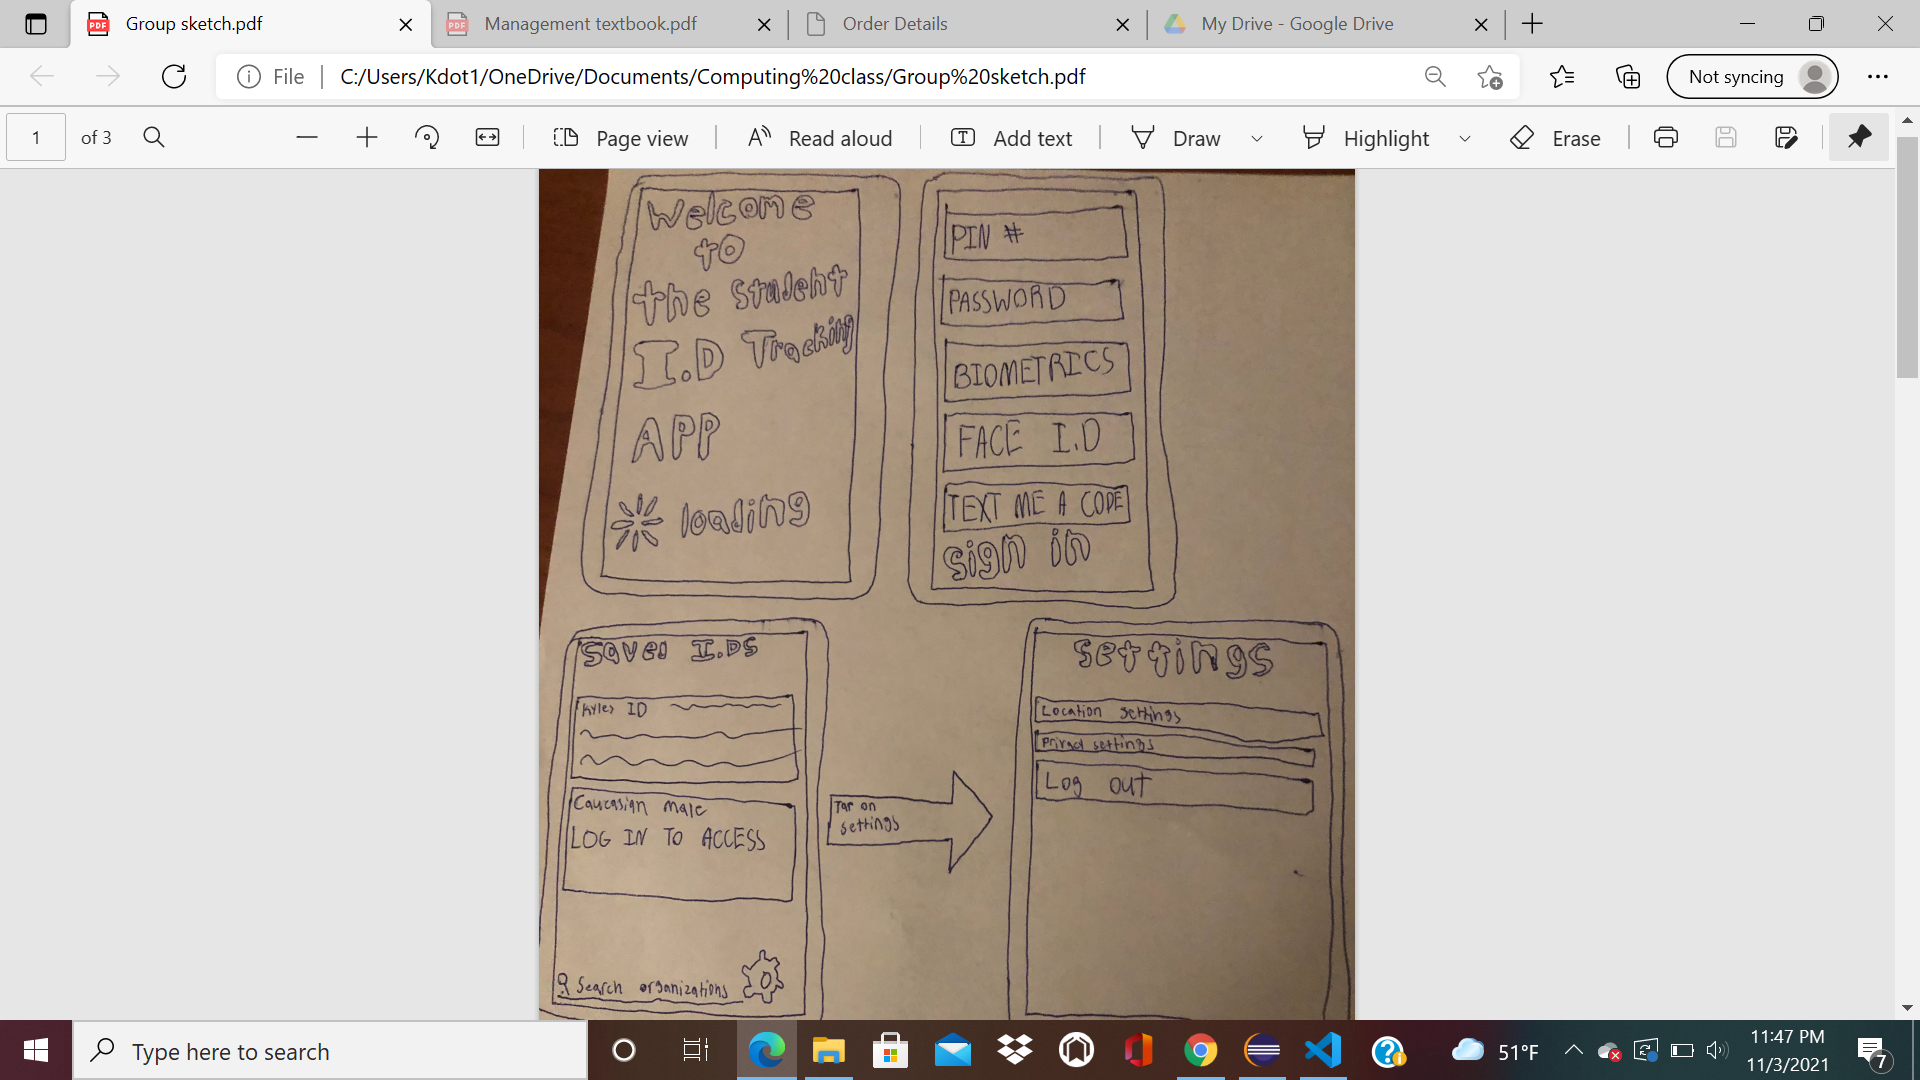 Group sketch.pdf
Management textbook.pdf
Order Details
My Drive - Google Drive
File
C:/Users/Kdot1/OneDrive/Documents/Computing%20class/Group%20sketch.pdf
Not syncing
1 of 3
Page view
Read aloud
Add text
Draw
Highlight
Erase
Welcome
to
the Student
I.D Tracking
APP
loading
PIN #
PASSWORD
BIOMETRICS
FACE I.D
TEXT ME A CODE
sign in
Saved I.DS
Kyles ID
Caucasian male
LOG IN TO ACCESS
Search organizations
Tap on
settings
Settings
Location settings
settings
Log out
Type here to search
51°F
11:47 PM
11/3/2021
7